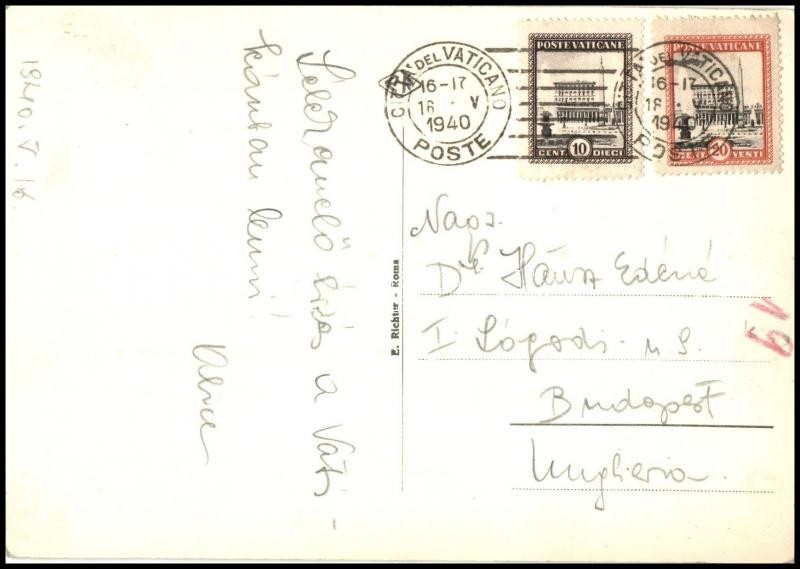 1940. V. 16.
Lelkemelő érzés a Vati-
kánban lenni!
Alice
E. Richter - Roma
CITTA DEL VATICANO
16-17
16 V
1940
POSTE
POSTE VATICANE
CENT 10 DIECI
CITTA DEL VATICANO
16-17
16 V
1940
POSTE
POSTE VATICANE
CENT 20 VENTI
Nags.
Dr Edéné
I. Lógodi u 9.
Budapest
Ungheria.
19